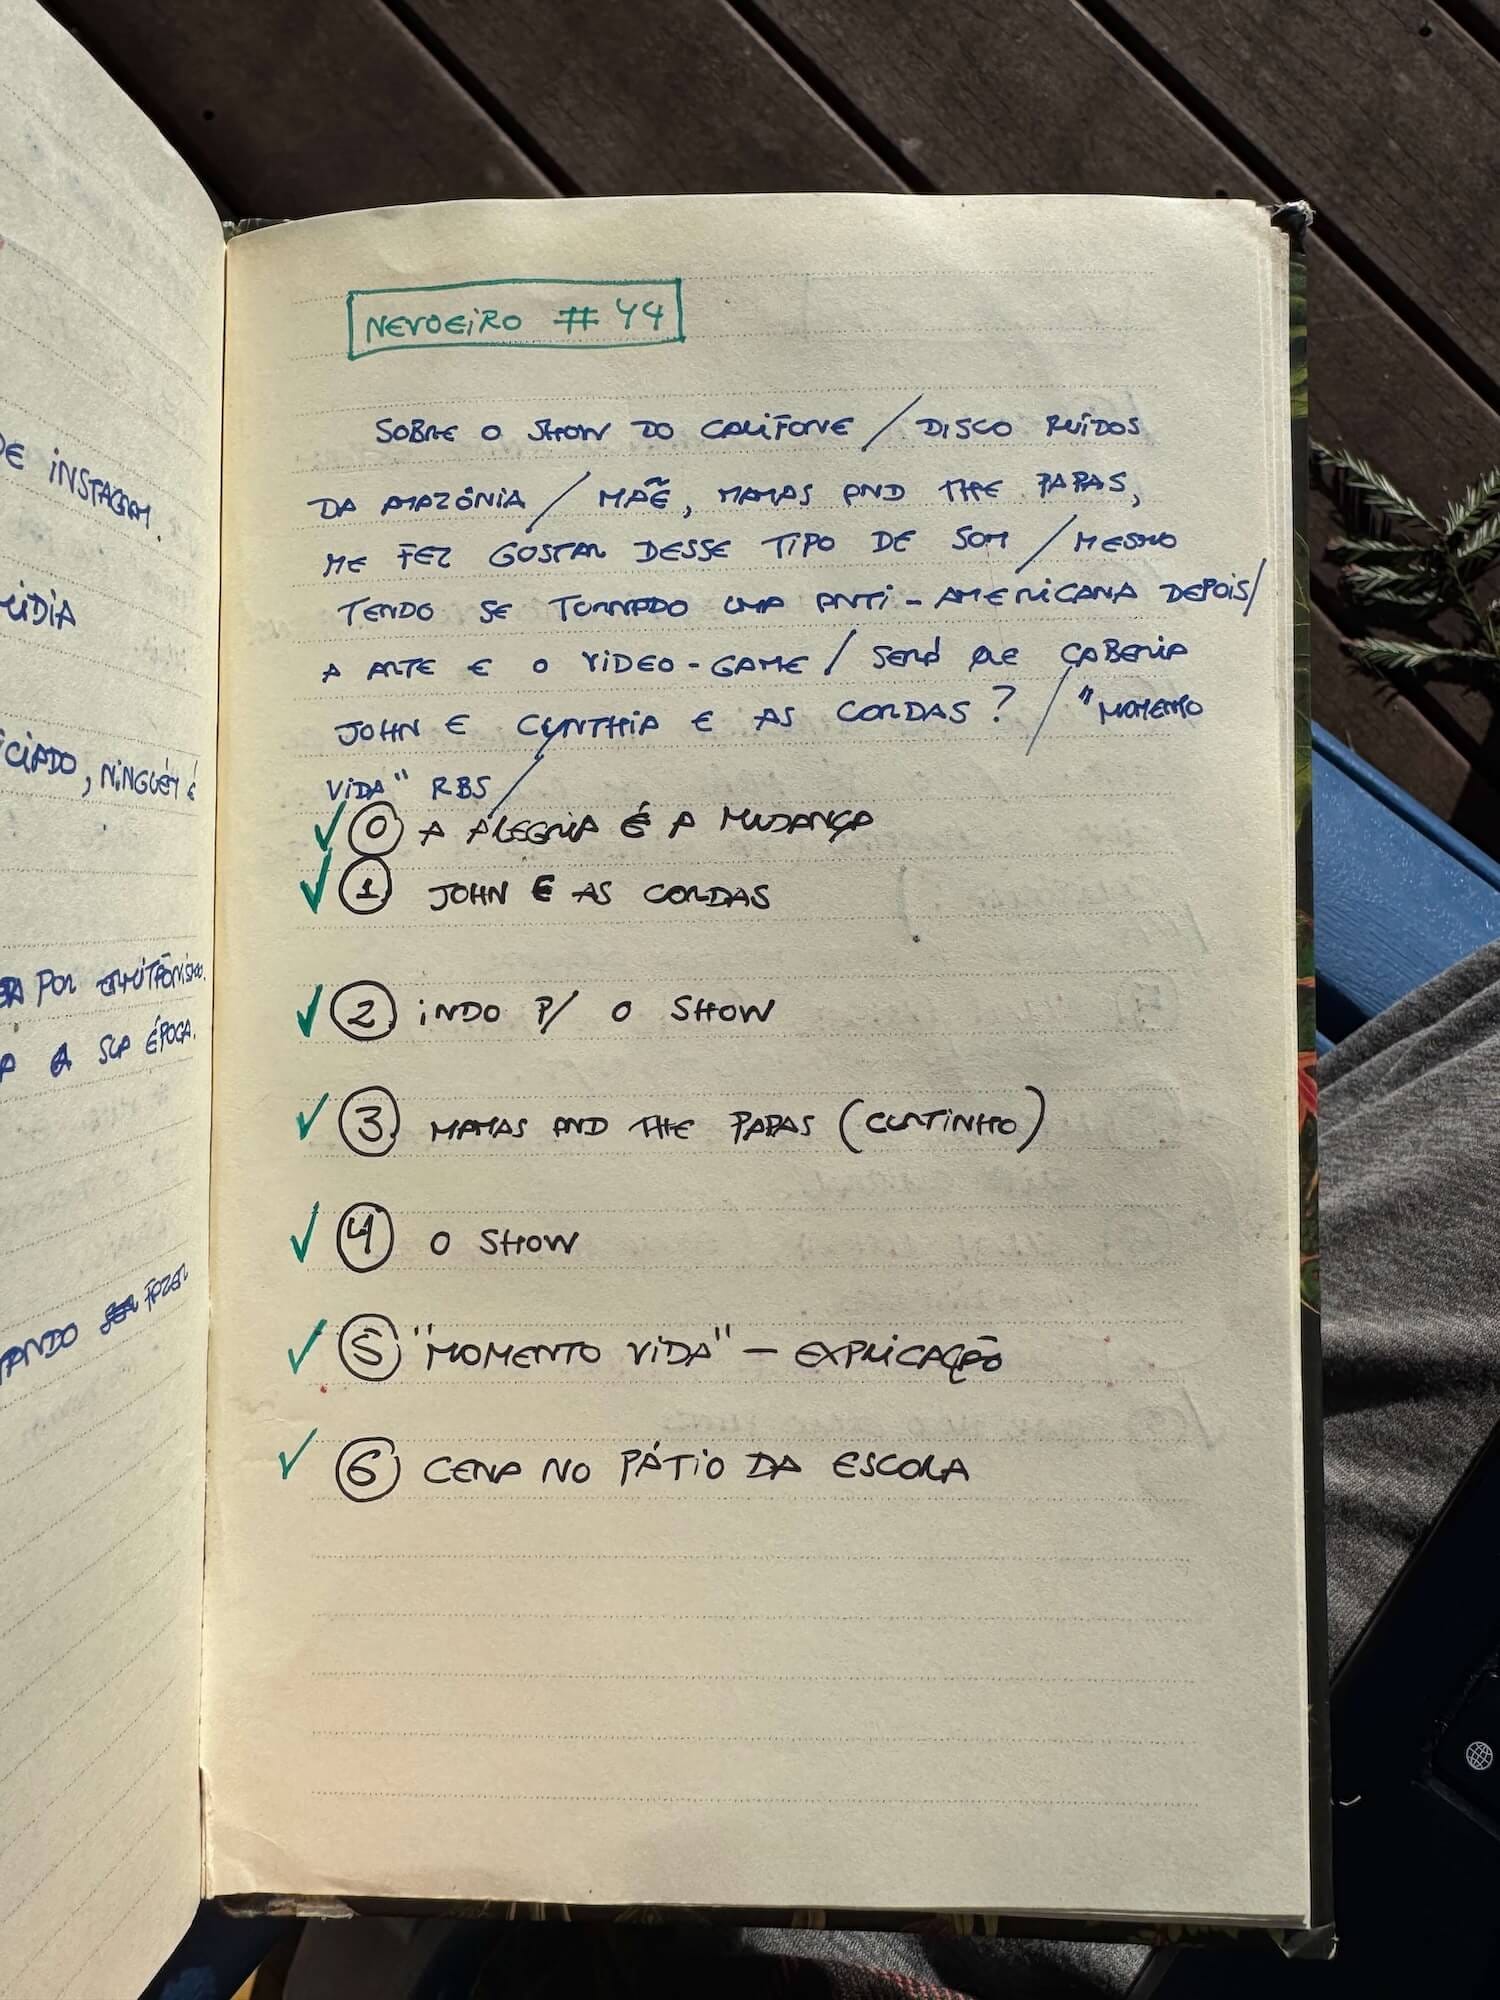 DE INSTAGRAM.
MÍDIA
CIADO, NINGUÉM É
POR
A SUA ÉPOCA.
FAZER
NEVOEIRO #44
SOBRE O SHOW DO CALIFONE / DISCO RUÍDOS
DA AMAZÔNIA / MÃE, MAMAS AND THE PAPAS,
ME FEZ GOSTAR DESSE TIPO DE SOM / MESMO
TENDO SE TORNADO UMA ANTI-AMERICANA DEPOIS/
A ARTE E O VIDEO-GAME / SERÁ QUE CABERIA
JOHN E CYNTHIA E AS CORDAS? / "MOMENTO
VIDA" RBS /
✓ 0 A ALEGRIA É A MUDANÇA
✓ 1 JOHN E AS CORDAS
✓ 2 INDO P/ O SHOW
✓ 3 MAMAS AND THE PAPAS (CURTINHO)
✓ 4 O SHOW
✓ 5 "MOMENTO VIDA" - EXPLICAÇÃO
✓ 6 CENA NO PÁTIO DA ESCOLA